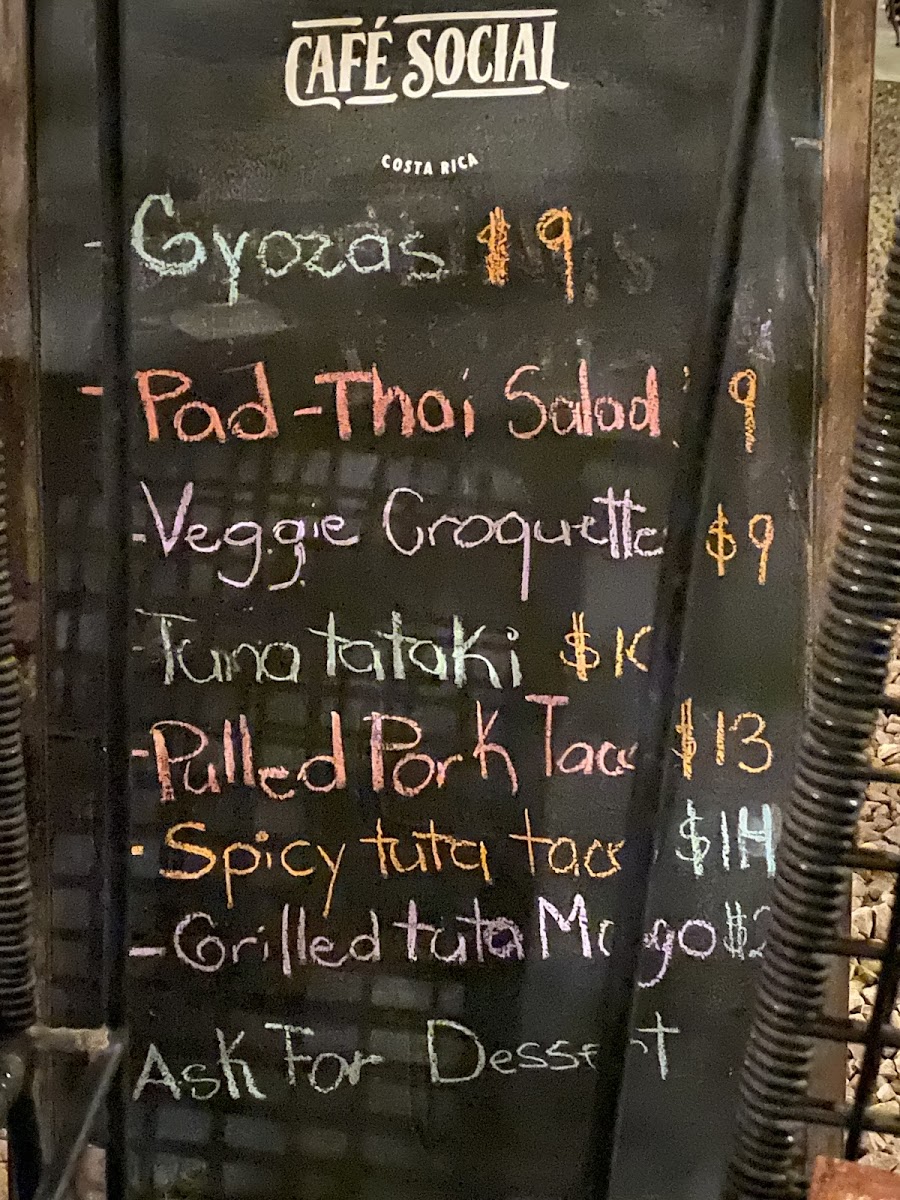 CAFÉ SOCIAL
COSTA RICA
- Gyozas $9
- Pad-Thai Salad 9
- Veggie Croquette $9
- Tuna tataki
- Pulled Pork $13
- Spicy tuta $14
- Grilled tuta
Ask For Dessert